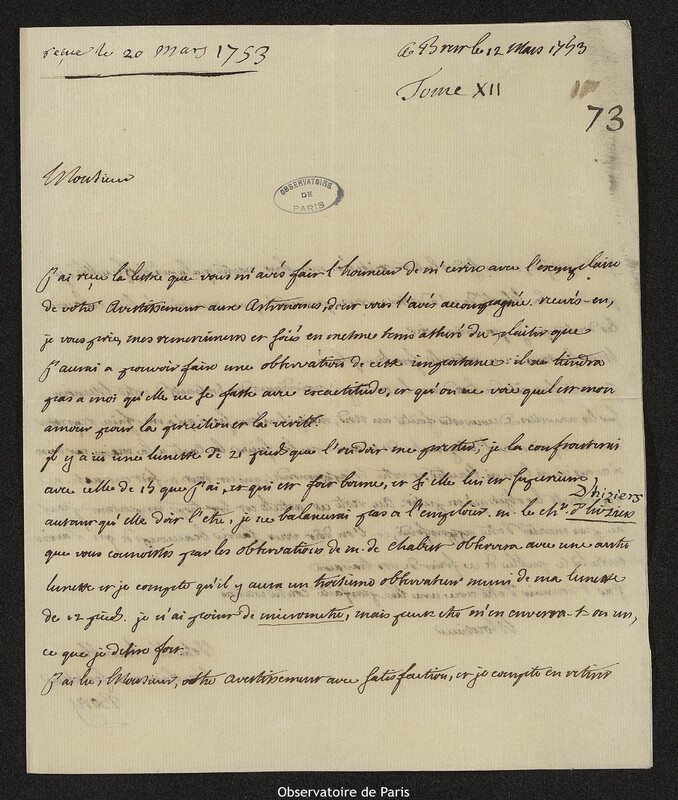 reçue le 20 mars 1753
a Brest le 12 Mars 1753
Tome XII
73
Monsieur
OBSERVATOIRE
DE
PARIS
j'ai reçu la lettre que vous m'avés fait l'honneur de m'ecrire avec l'exemplaire
de votre Avertissement aux Astronomes, dont vous l'avés accompagnée. recevés-en,
je vous prie, mes remerciemens et soiés en mesme tems assuré du plaisir que
j'aurai a pouvoir faire une observation de cette importance. il ne tiendra
pas a moi qu'elle ne se fasse avec exactitude, et qu'on ne voie quel est mon
amour pour la precision et la verité.
il y a ici une lunette de 21 pieds que l'on doit me prester, je la confronterai
avec celle de 15 que j'ai, et qui est fort bonne, et si elle lui est superieure
autant qu'elle doit l'etre, je ne balancerai pas a l'emploier. m. le chr.
D'hiziers
que vous connoissés par les observations de m. de chabert observera avec une autre
lunette et je compte qu'il y aura un troisieme observateur muni de ma lunette
de 12 pieds. je n'ai point de micrometre, mais peut etre m'en enverra-t-on un,
ce que je desire fort.
j'ai lu, Monsieur, votre avertissement avec satisfaction, et je compte en retirer
Observatoire de Paris